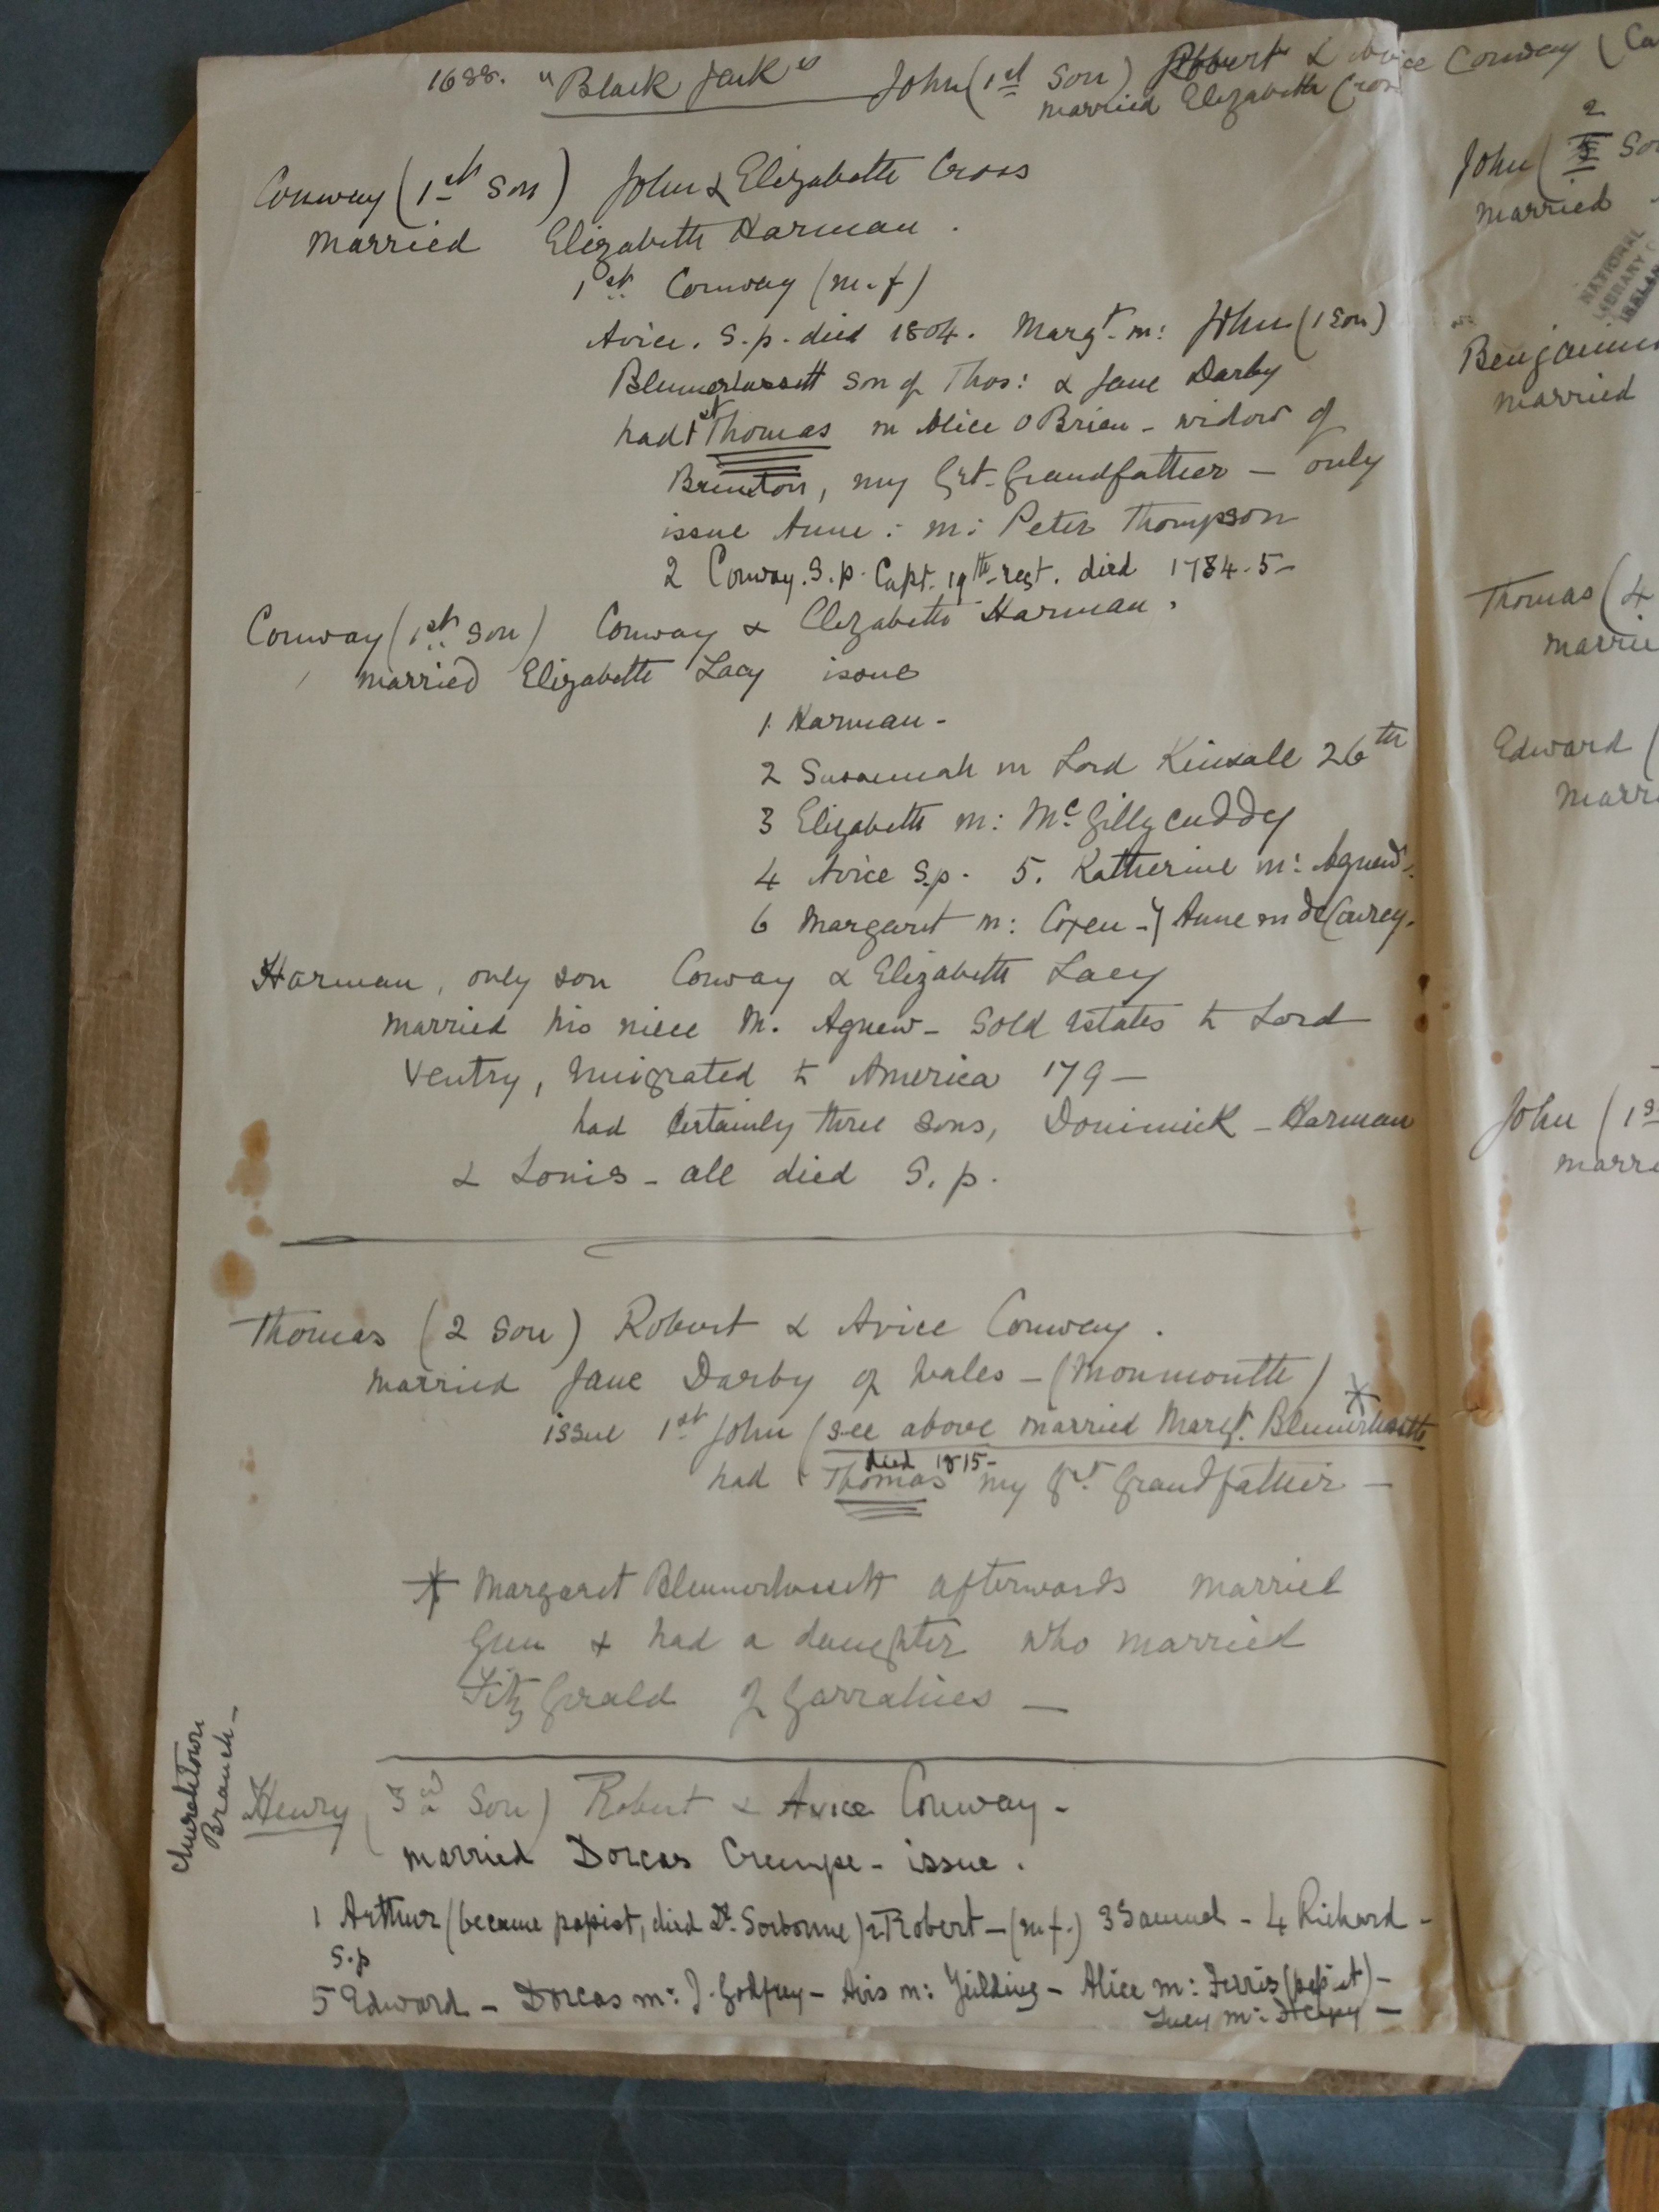 1688. "Black Jack" John (1st Son) Robert & Avice Conway (Ca
married Elizabeth Cross
Conway (1st Son) John & Elizabeth Cross
married Elizabeth Harman.
1st Conway (m.f)
Avice. S.p. died 1804. Margt. m: John (1 Son)
Blennerhassett Son of Thos: & Jane Darby
had 1st Thomas m Alice O Brien - widow of
Brunton, my Grt. Grandfather - only
issue Anne: m: Peter Thompson
2 Conway. S.p. Capt. 19th regt. died 1784.5-
Conway (1st Son) Conway & Elizabeth Harman.
married Elizabeth Lacy issue
1. Harman -
2 Susannah m Lord Kinsale 26th
3 Elizabeth m: McGillycuddy
4 Avice S.p. 5. Katherine m: Agnew.
6 Margaret m: Coxen - 7 Anne m de Courcy.
Harman, only son Conway & Elizabeth Lacy
married his niece M. Agnew - Sold Estates to Lord
Ventry, emigrated to America 179-
had certainly three sons, Dominick - Harman
& Louis - all died S.p.
Thomas (2 Son) Robert & Avice Conway.
married Jane Darby of Wales - (Monmouth)
issue 1st John (see above married Margt. Blennerhassett *
died 1815-
had 1 Thomas my Grt. Grandfather -
* Margaret Blennerhassett afterwards married
Gun & had a daughter who married
FitzGerald of Garrahies -
Churchtown
Branch -
Henry (3rd Son) Robert & Avice Conway -
married Dorcas Crumpe - issue.
1 Arthur (became papist, died Dr. Sorbonne) 2 Robert - (m.f.) 3 Samuel - 4 Richard -
S.p
5 Edward - Dorcas m: J. Godfrey - Avis m: Yielding - Alice m: Ferris (papist) -
Lucy m: Heapy -
2
John ( Son
married
NATIONAL
LIBRARY
IRELAND
Benjamin
married
Thomas (4
marrie
Edward (
marri
John (1s
marri